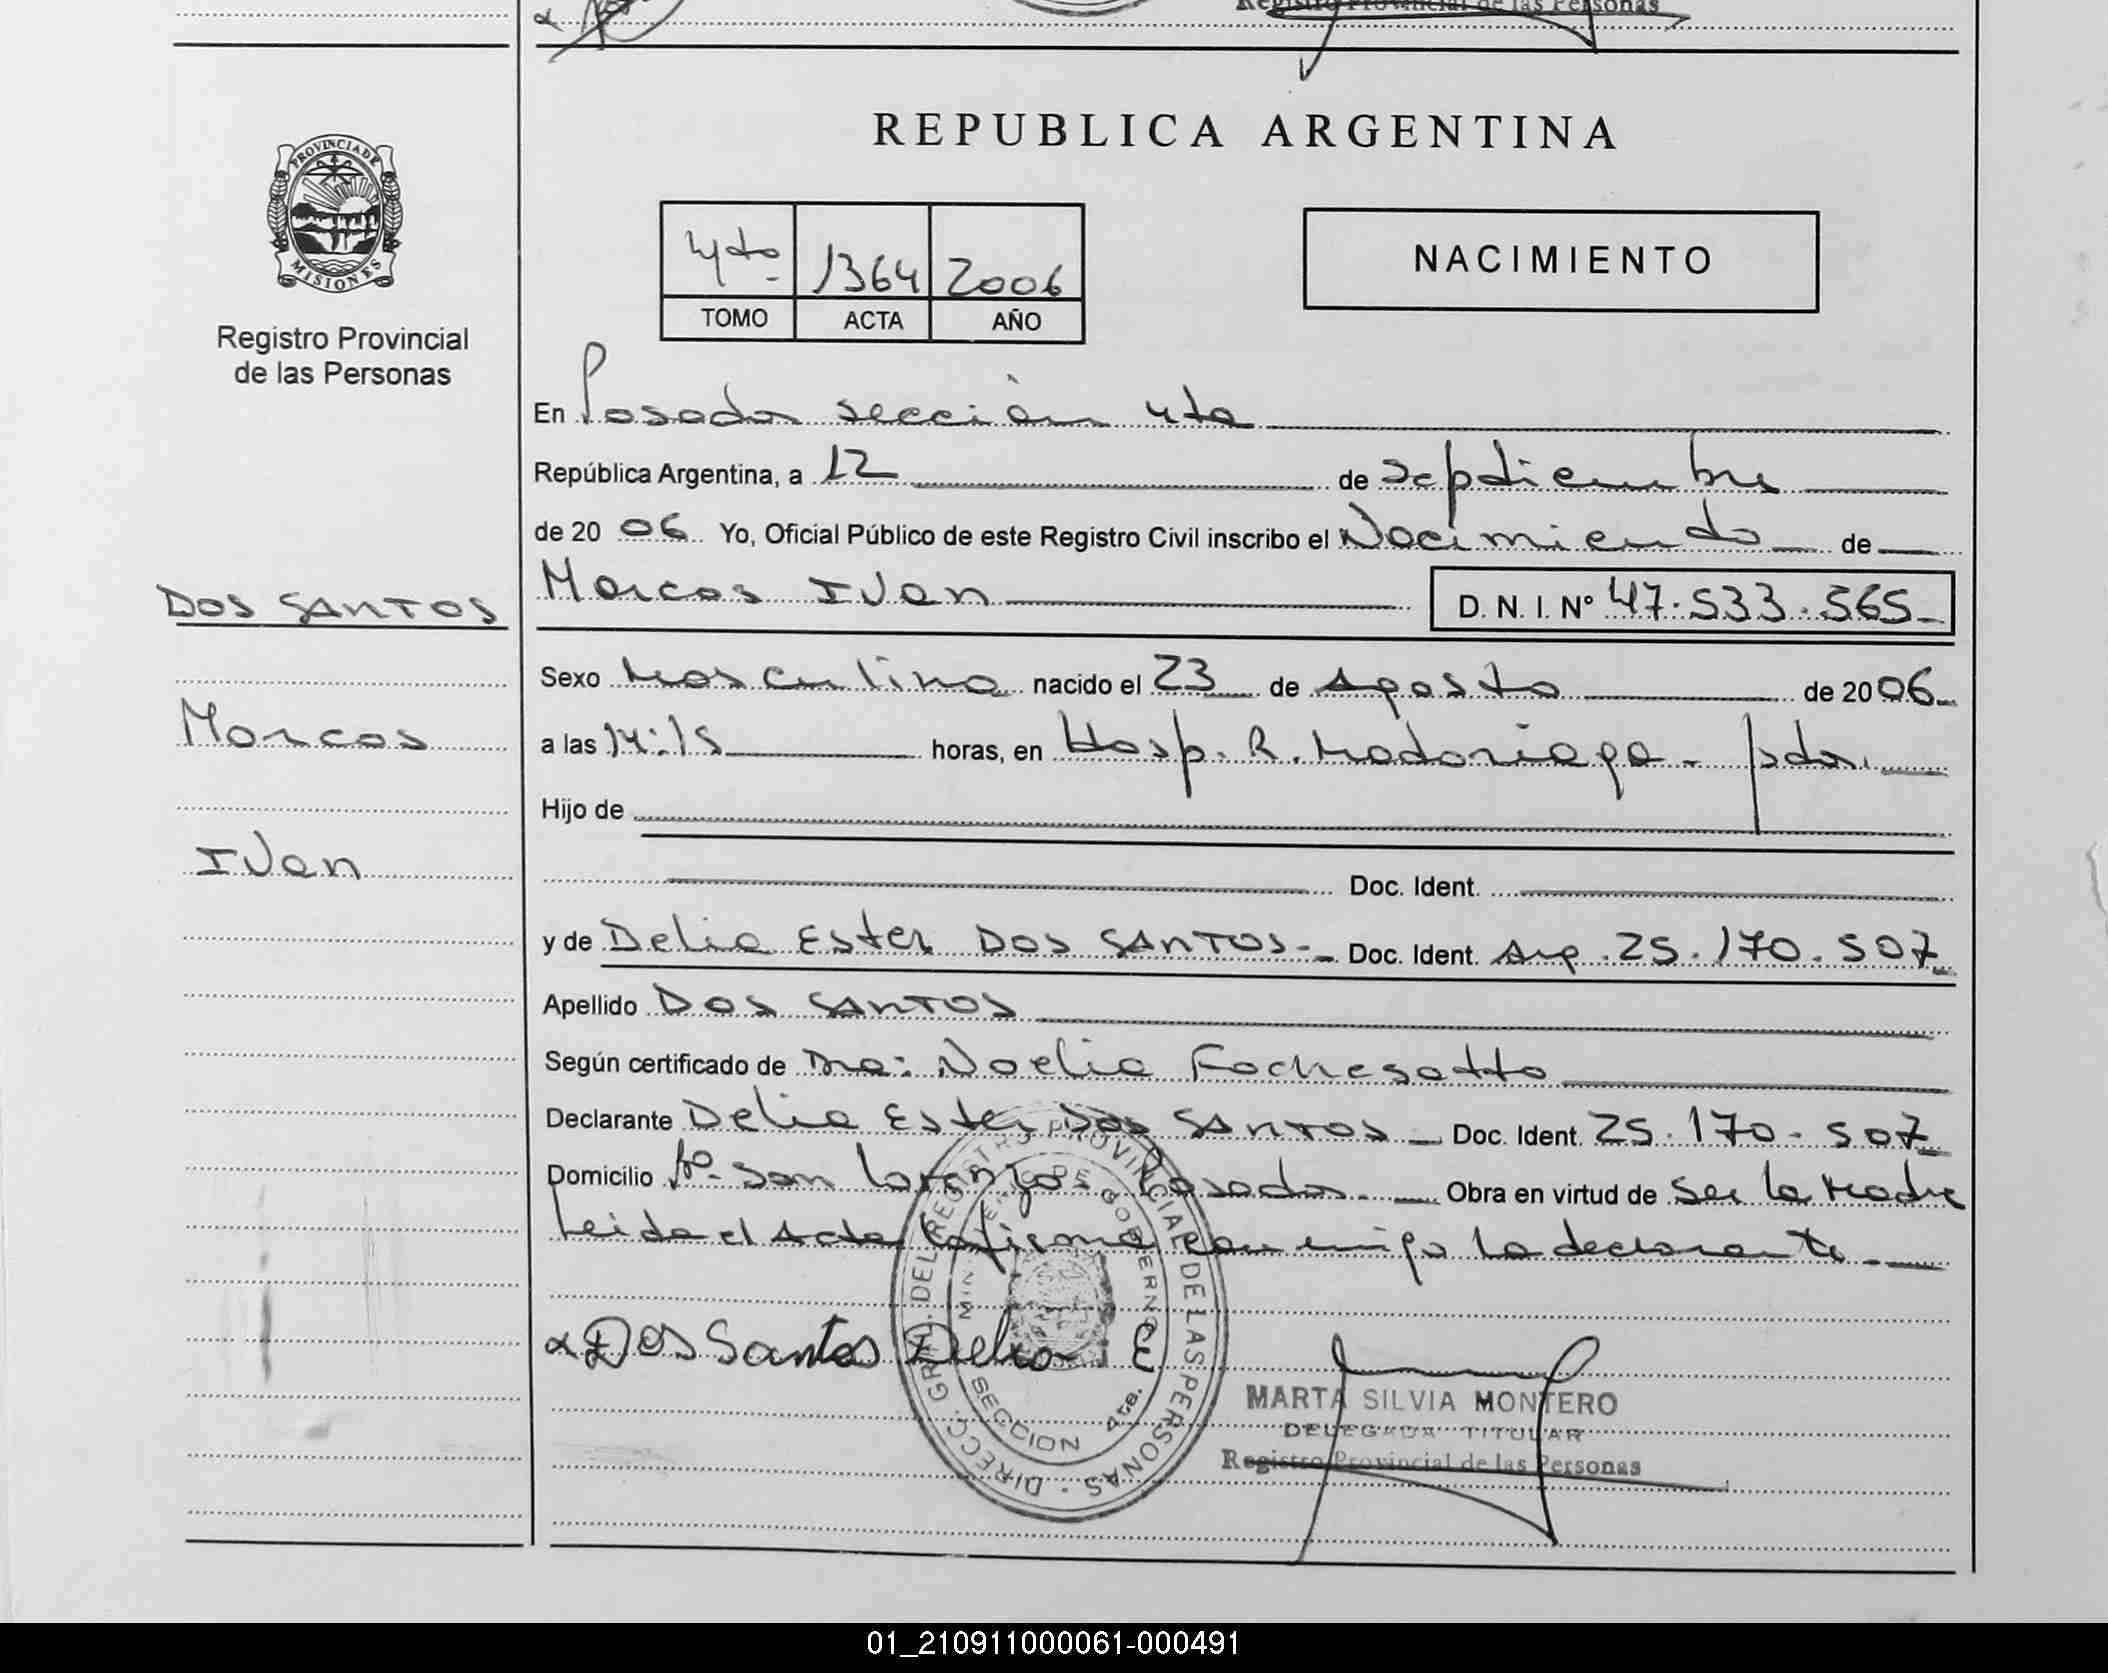 Registro Provincial de las Personas
PROVINCIA DE
MISIONES
Registro Provincial
de las Personas
DOS SANTOS
Marcos
Ivan
REPUBLICA ARGENTINA
4to 1364 2006
TOMO ACTA AÑO
NACIMIENTO
En Posadas sección 4ta
República Argentina, a 12 de septiembre
de 20 06 Yo, Oficial Público de este Registro Civil inscribo el Nacimiento de
Marcos Ivan D. N. I. Nº 47.533.565
Sexo Masculino nacido el 23 de Agosto de 20 06
a las 14:15 horas, en Hosp. R. Madariaga - Pdas.
Hijo de
Doc. Ident.
y de Delia Ester DOS SANTOS - Doc. Ident. Arg. 25.170.507
Apellido DOS SANTOS
Según certificado de Dra: Noelia Fochesatto
Declarante Delia Ester Dos SANTOS Doc. Ident. 25.170.507
Domicilio Bº San Lorenzo - Posadas. Obra en virtud de ser la Madre
Leida el Acta la firma conmigo la declarante
Dos Santos Delia E
DIRECC. GRAL. DEL REGISTRO PROVINCIAL DE LAS PERSONAS
MINISTERIO DE GOBIERNO
SECCION 4ta.
MARTA SILVIA MONTERO
DELEGADA TITULAR
Registro Provincial de las Personas
01_210911000061-000491